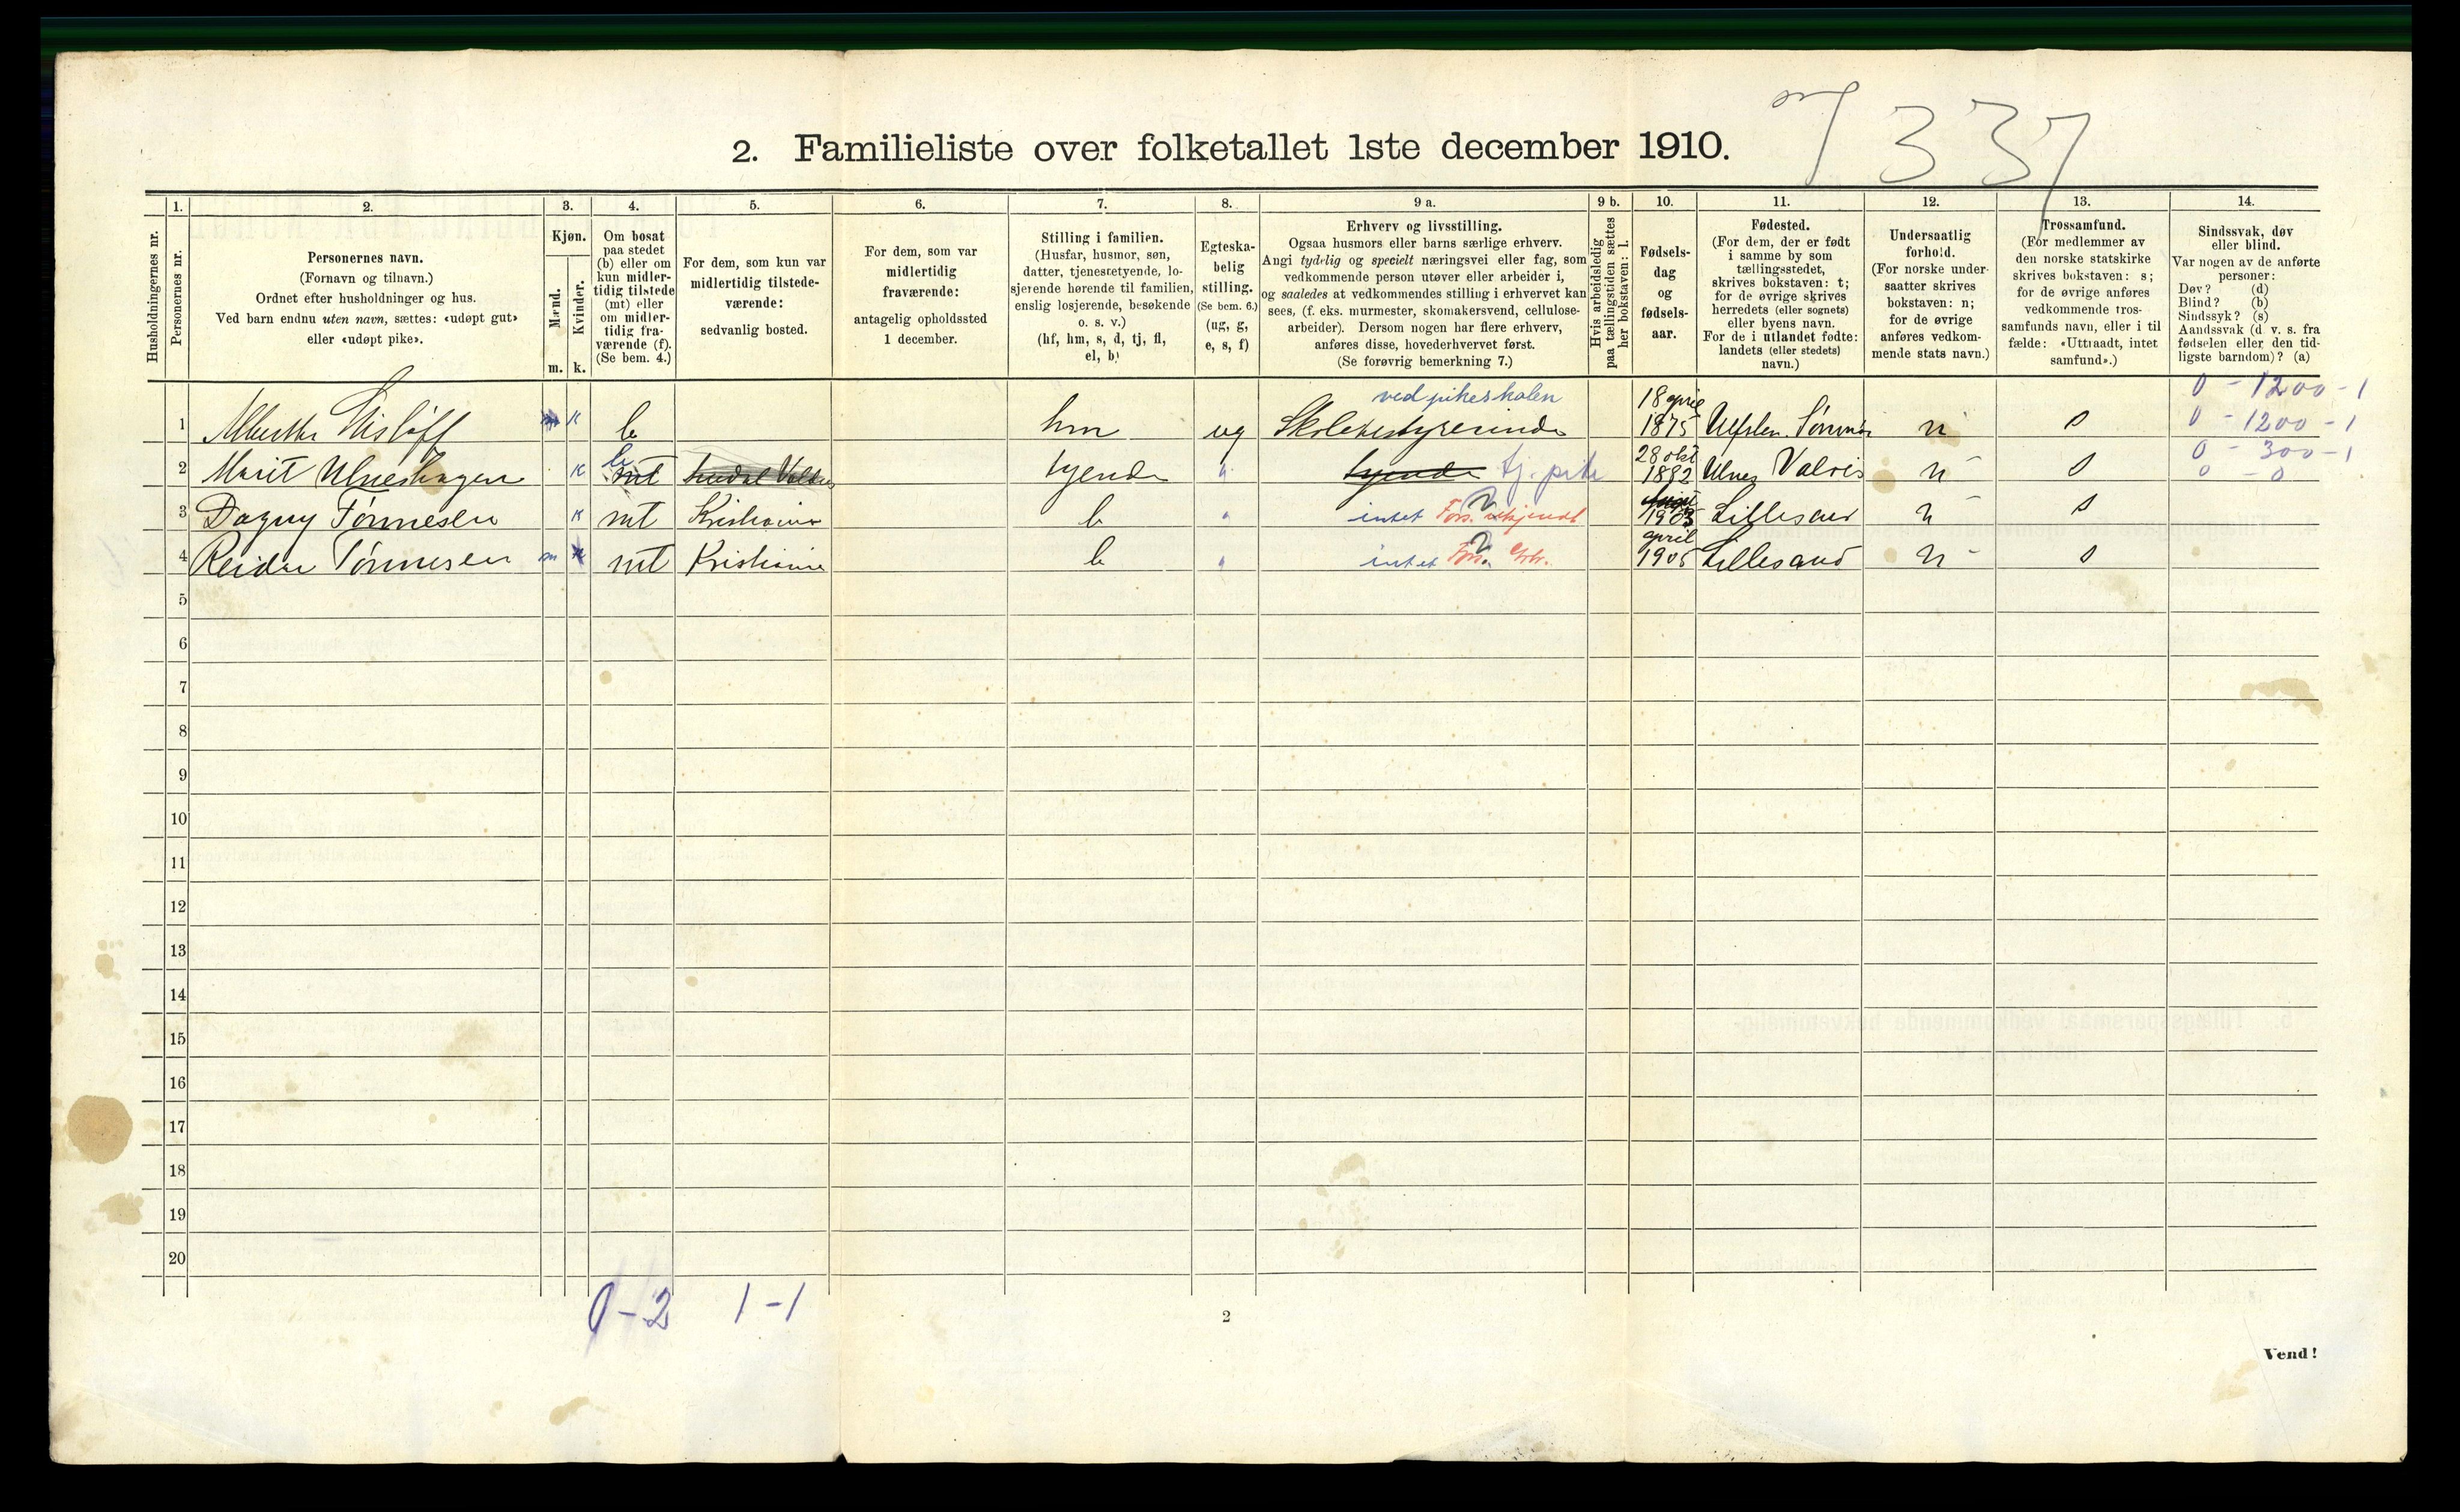 337
2. Familieliste over folketallet 1ste december 1910.
Husholdningernes nr.
1.
Personernes nr.
2.
Personernes navn.
(Fornavn og tilnavn.)
Ordnet efter husholdninger og hus.
Ved barn endnu uten navn, sættes: «udøpt gut»
eller «udøpt pike».
3.
Kjøn.
Mænd.
Kvinder.
m.
k.
4.
Om bosat
paa stedet
(b) eller om
kun midler-
tidig tilstede
(mt) eller
om midler-
tidig fra-
værende (f).
(Se bem. 4.)
5.
For dem, som kun var
midlertidig tilstede-
værende:
sedvanlig bosted.
6.
For dem, som var
midlertidig
fraværende:
antagelig opholdssted
1 december.
7.
Stilling i familien.
(Husfar, husmor, søn,
datter, tjenestetyende, lo-
sjerende hørende til familien,
enslig losjerende, besøkende
o. s. v.)
(hf, hm, s, d, tj, fl,
el, b)
8.
Egteska-
belig
stilling.
(Se bem. 6.)
(ug, g,
e, s, f)
9 a.
Erhverv og livsstilling.
Ogsaa husmors eller barns særlige erhverv.
Angi tydelig og specielt næringsvei eller fag, som
vedkommende person utøver eller arbeider i,
og saaledes at vedkommendes stilling i erhvervet kan
sees, (f. eks. murmester, skomakersvend, cellulose-
arbeider). Dersom nogen har flere erhverv,
anføres disse, hovederhvervet først.
(Se forøvrig bemerkning 7.)
9 b.
Hvis arbeidsledig
paa tællingstiden sættes
her bokstaven: l.
10.
Fødsels-
dag
og
fødsels-
aar.
11.
Fødested.
(For dem, der er født
i samme by som
tællingsstedet,
skrives bokstaven: t;
for de øvrige skrives
herredets (eller sognets)
eller byens navn.
For de i utlandet fødte:
landets (eller stedets)
navn.)
12.
Undersaatlig
forhold.
(For norske under-
saatter skrives
bokstaven: n;
for de øvrige
anføres vedkom-
mende stats navn.)
13.
Trossamfund.
(For medlemmer av
den norske statskirke
skrives bokstaven: s;
for de øvrige anføres
vedkommende tros-
samfunds navn, eller i til
fælde: «Uttraadt, intet
samfund».)
14.
Sindssvak, døv
eller blind.
Var nogen av de anførte
personer:
Døv? (d)
Blind? (b)
Sindssyk? (s)
Aandssvak (d v. s. fra
fødselen eller den tid-
ligste barndom)? (a)
ved pikeskolen 18 april 0 - 1200 - 1
1 k b hm ug Skolebestyrerinde 1875 n s 0 - 1200 - 1
28 okt 0 - 300 - 1
2 Marit Ulneshagen k b mt tyende " tyende tj. pike 1882 Ulnes Valdris n s 0 - 0
3 Dagny Tönnesen k mt Kristiania b " intet Fors. 1903 Lillesand n s
april
4 Reidar Tönnesen m k mt Kristiania b " intet Fors. 1905 Lillesand n s
5
6
7
8
9
10
11
12
13
14
15
16
17
18
19
20
0 - 2 1 - 1
2
Vend!